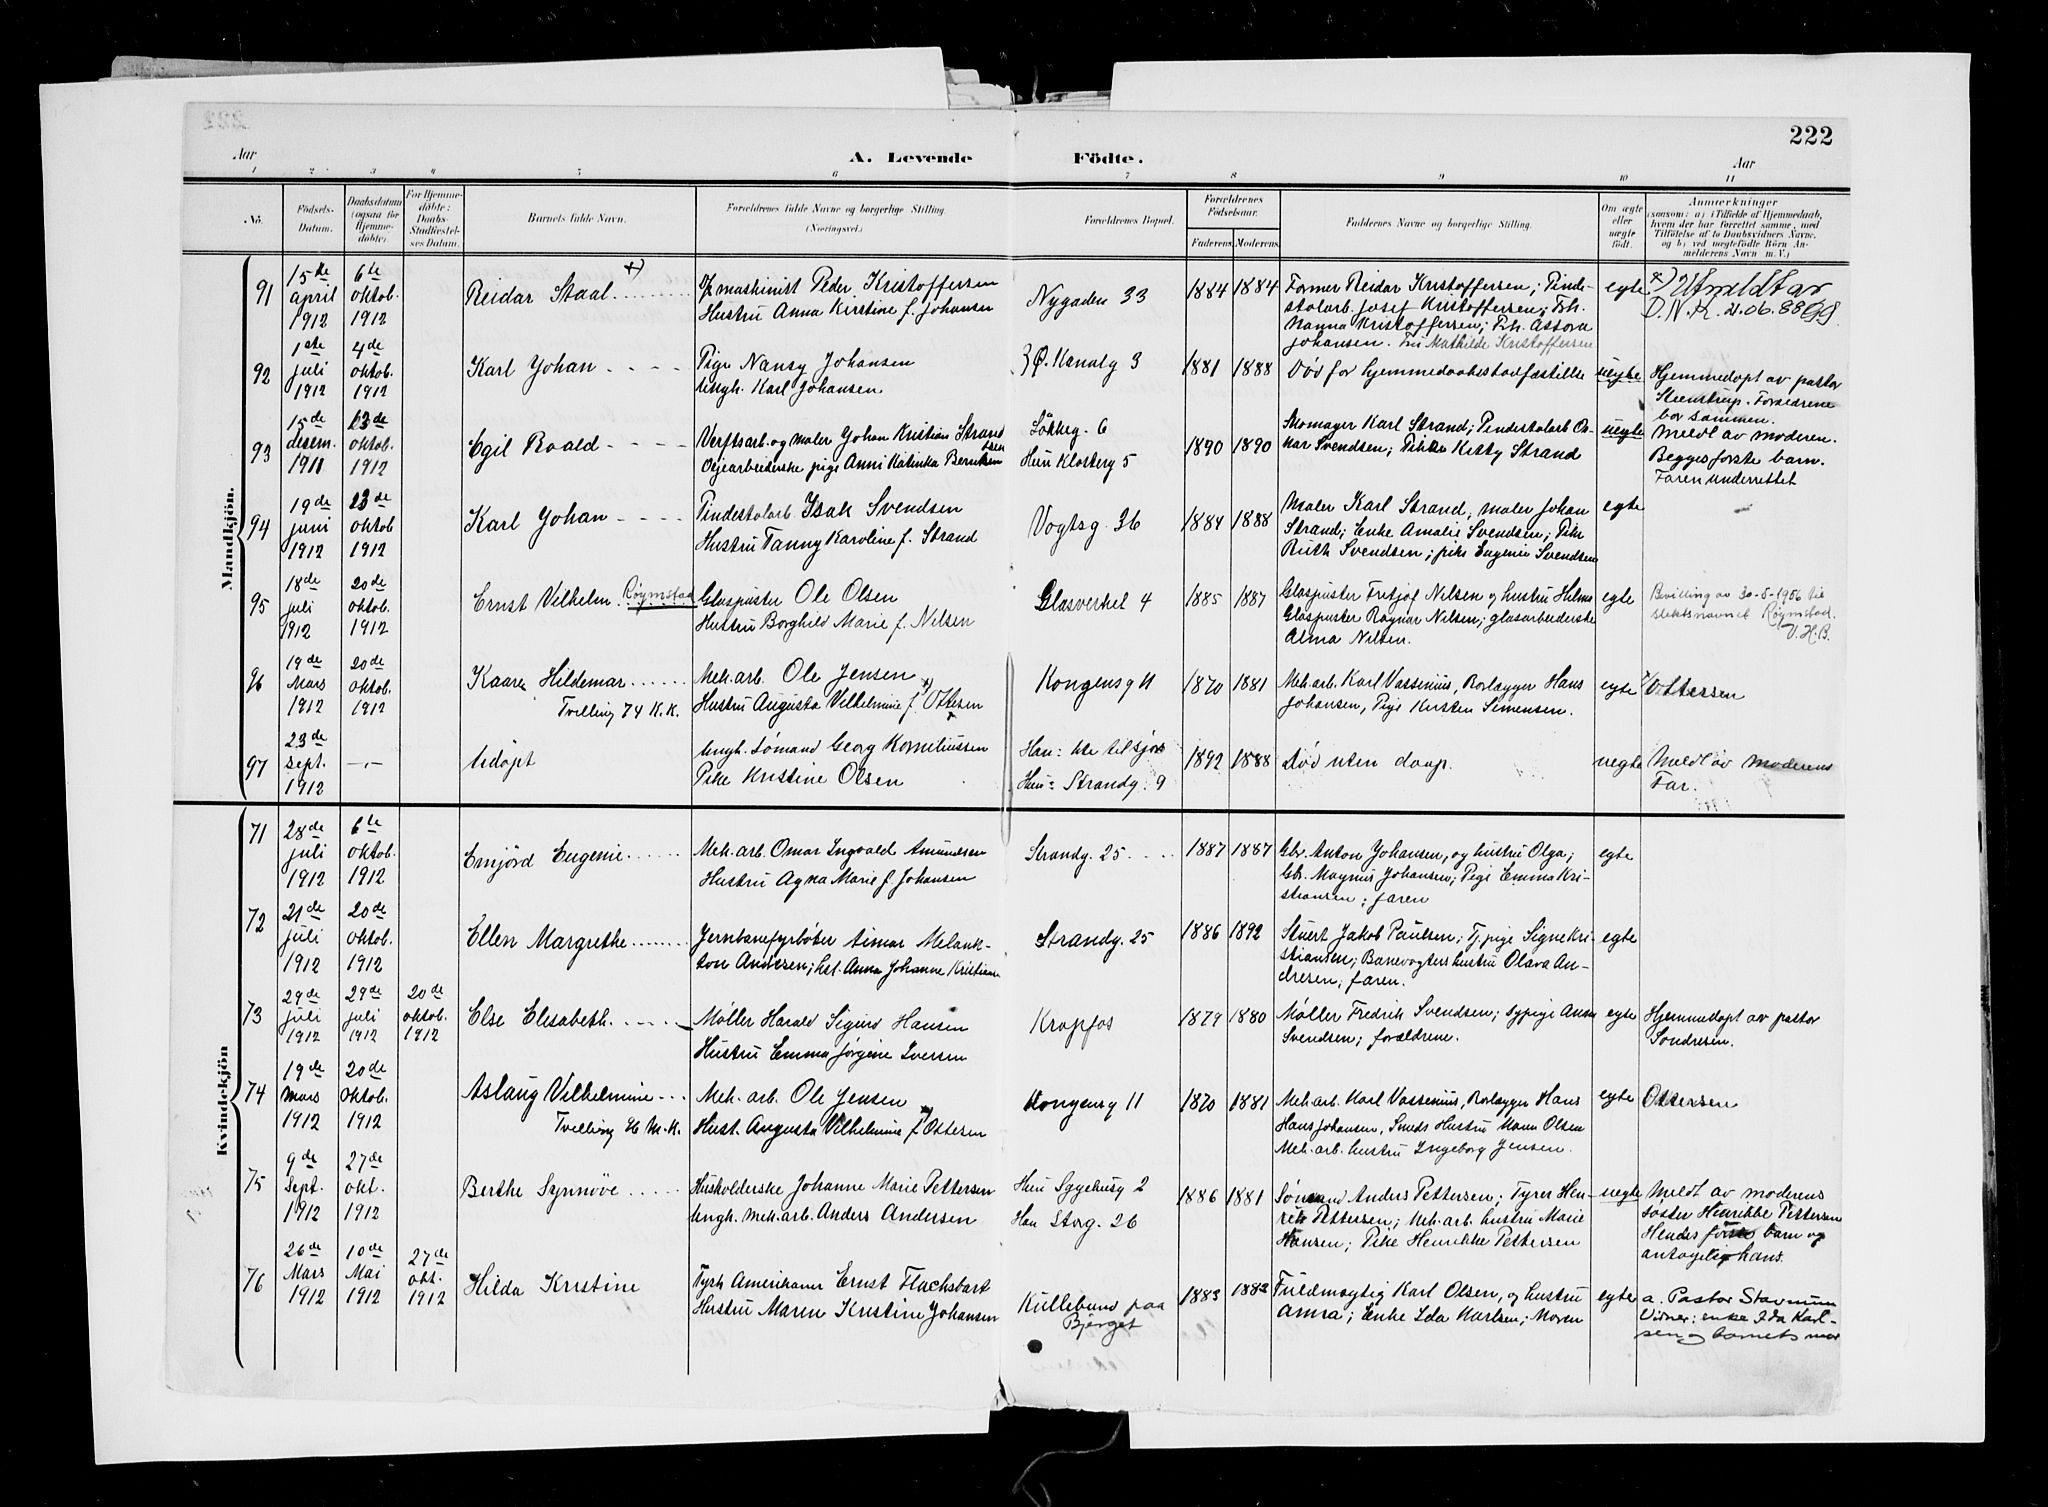 222
Aar
A. Levende Födte.
Aar
1 2 3 4 5 6 7 8 9 10 11
No.
Födsels-Datum.
Daabsdatum (ogsaa for Hjemme-döbte).
For Hjemme-döbte: Daabs-Stadfæstel-ses Datum.
Barnets fulde Navn.
Forældrenes fulde Navne og borgerlige Stilling. (Næringsvei.)
Forældrenes Bopæl.
Forældrenes Födselsaar.
Faderens. Moderens.
Faddernes Navne og borgerlige Stilling.
Om ægte eller uægte födt.
Anmærkninger
(saasom: a) i Tilfælde af Hjemmedaab, hvem der har forrettet samme, med Tilföielse af to Daabsvidners Navne. og b) ved uægtefödte Börn Anmelderens Navn m. V.)
Mandkjön.
91
15de april 1912
6te oktob. 1912
Reidar Staal x)
maskinist Peder Kristoffersen
Hustru Anna Kirstine f. Johansen
Nygaden 33
1884 1884
Former Reidar Kristoffersen; Pinde-
stolarb. Josef Kristoffersen; Frk.
Nanna Kristoffersen; Frk. Astora
Johansen. Fru Mathilde Kristoffersen
egte
x) Utmeldt av
D.N.K. 21.06.88
92
1ste juli 1912
4de oktob. 1912
Karl Johan
Pige Nansy Johansen
Ungk. Karl Johansen
Ø. Kanalg 3
1881 1888
Død før hjemmedaabsstadfæstelse
uegte
Hjemmedøpt av pastor
Steenstrup. Forældrene
bor sammen.
93
15de desem. 1911
13de oktob. 1912
Egil Roald
Verftsarb. og maler Johan Kristian Strand
Oljearbeiderske pige Anni Katinka Berntsen
Løkkeg. 6
Hun Klosterg 5
1890 1890
Skomager Karl Strand; Pindestolarb Os-
kar Svendsen; Pike Ketty Strand
uegte
Meldt av moderen.
Begges første barn.
Faren underrettet
94
19de juni 1912
23de oktob 1912
Karl Johan
Pindestolarb. Isak Svendsen
Hustru Fanny Karoline f. Strand
Vogtsg. 36
1884 1888
Maler Karl Strand; maler Johan
Strand; Enke Amalie Svendsen; Pike
Ruth Svendsen; pike Eugenie Svendsen
egte
95
18de juli 1912
20de oktob. 1912
Ernst Vilhelm Røymstad
Glaspuster Ole Olsen
Hustru Borghild Marie f. Nilsen
Glasverket 4
1885 1887
Glaspuster Fritjof Nilsen og hustru Hilma
Glaspuster Ragnar Nilsen; glasarbeiderske
Alma Nilsen.
egte
Bevilling av 30-5-1956 til
slektsnavnet Røymstad.
V.H.B.
96
19de Mars 1912
20de oktob. 1912
Kaare Hildemar
Tvilling 74 K.K.
Mek. arb. Ole Jensen
Hustru Augusta Vilhelmine f. Ottesen
Kongensg 11
1870 1881
Mek. arb. Karl Vassenius, Rørlægger Hans
Johansen, Pige Kirsten Simensen.
egte
Ottersen
97
23de sept. 1912
— . —
Udøpt
Ungk. Sømand Georg Korneliussen
Pike Kristine Olsen
Han: Ute til sjøs
Hun: Strandg. 9
1892 1888
Død uten daap.
uegte
Meldt av moderens
Far.
Kvindekjön
71
28de juli 1912
6te oktob. 1912
Emjörd Eugenie
Mek. arb. Omar Ingvald Amundsen
Hustru Agna Marie f. Johansen
Strandg. 25
1887 1887
Gbr. Anton Johansen, og hustru Olga;
Gbr. Magnus Johansen; Pige Emma Kri-
stiansen; faren
egte
72
21de juli 1912
20de oktob. 1912
Ellen Margrethe
Jernbanefyrbøter Einar Melank-
ton Andresen; hst. Anna Johanne Kristians
Strandg. 25
1886 1892
Stuert Jakob Paulsen; Tj. pige Signe Kri-
stiansen; Banevogters hustru Olava An-
dresen; faren.
egte
73
29de juli 1912
29de juli 1912
20de oktob. 1912
Else Elisabeth
Møller Harald Sigurd Hansen
Hustru Emma Jørgine Iversen
Kropfos
1879 1880
Møller Fredrik Svendsen; sypige Anna
Svendsen; forældrene.
egte
Hjemmedøpt av pastor
Sondresen.
74
19de Mars 1912
20de oktob. 1912
Aslaug Vilhelmine
Tvilling 96 M.K.
Mek. arb. Ole Jensen
Hust. Augusta Vilhelmine f. Ottesen
Kongensg 11
1870 1881
Mek. arb. Karl Vassenius, Rørlægger Hans
Hans Johansen, Smeds Hustru Maren Olsen
Mek. arb. hustru Ingeborg Jensen.
egte
Ottersen
75
9de Sept. 1912
27de okt. 1912
Berthe Synnöve
Husholderske Johanne Marie Pettersen
Ungk. mek. arb. Anders Andersen
Hun Sygehusg 2
Han Storg. 26
1886 1881
Sømand Anders Pettersen; Fyrer Hen-
rik Pettersen; Mek. arb. hustru Marie
Hansen; Pike Henrikke Pettersen
uegte
Meldt av moderens
søster Henrikke Pettersen
Hendes første barn og
antagelig hans.
76
26de Mars 1912
10de Mai 1912
27de okt. 1912
Hilda Kristine
Tysk Amerikaner Ernst Flachsbart
Hustru Maren Kristine Johansen
Kullebund paa
Bjerget
1883 1883
Fuldmægtig Karl Olsen, og hustru
Anna; Enke Ida Karlsen; Moren
egte
a. Pastor Stavnum
Vidner: enke Ida Karl-
sen og barnets mor